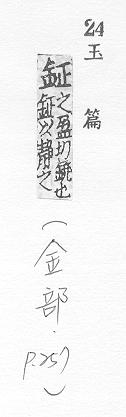 24
玉篇
鉦
之盈切鐃也
鉦以靜之
(金部.
P.257)